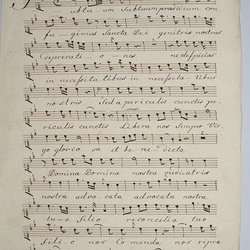 ublis um Subtuum præsidium con
fu gimus Sancta Dei genitrix nostras
Deprecati o nes ne despicias
in necessita tibus in necessita tibus
nostris Sed a periculis cunctis pe
riculis cunctis Libera nos Semper Vir
go glorio sa et be ne dicta
Domina Domina nostra
nostra advo cata advocata nostra
tuo filio reconcilia tuo
fili o nos Comenda nos repre